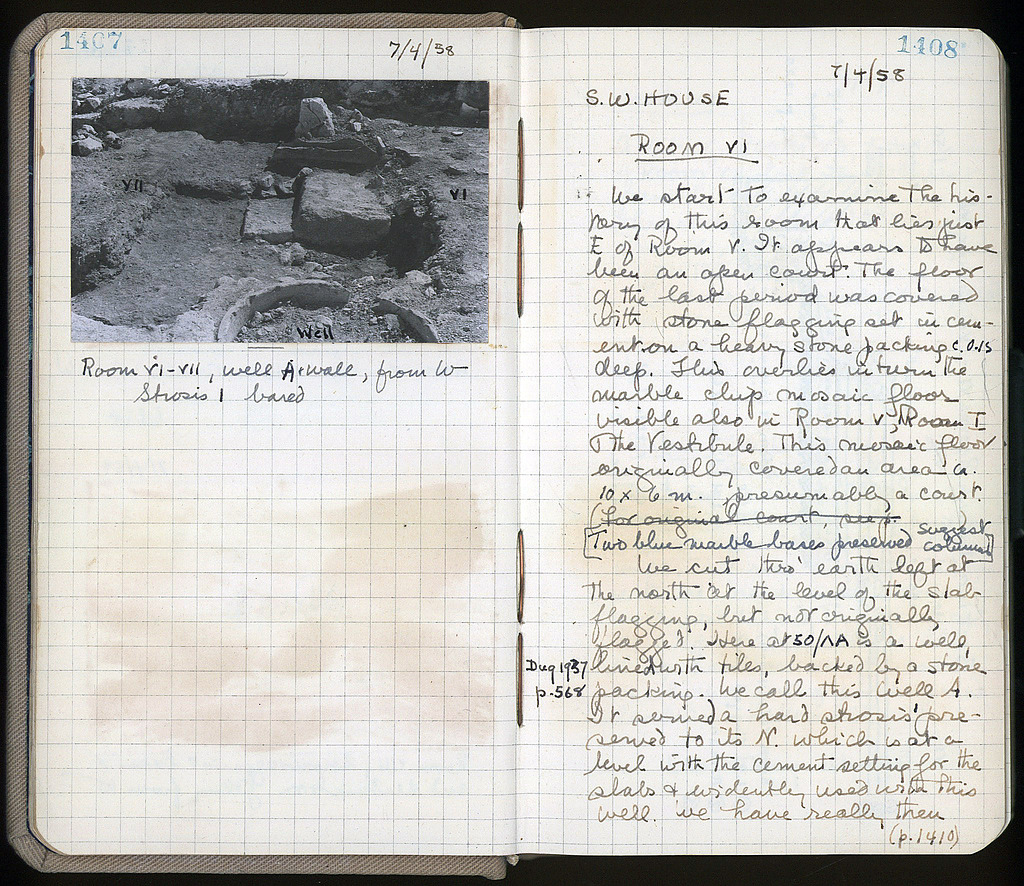 1407
7/4/58
VII
VI
Well
Room VI-VII, well A + wall, from W
Strosis 1 bared
1408
7/4/58
S.W. HOUSE
ROOM VI
We start to examine the his-
tory of this room that lies just
E of Room V. It appears to have
been an open court. The floor
of the last period was covered
with stone flagging set in cem-
ent on a heavy stone packing c. 0.15
deep. This overlies in turn the
marble chip mosaic floor
visible also in Room V, Room I
& the Vestibule. This mosaic floor
originally covered an area ca.
10 x 6 m. presumably a court.
(For original court, see p.
Two blue marble bases preserved suggest columns]
We cut thro' earth left at
the north at the level of the slab
flagging, but not originally
flagged. Here at 50/ΛΑ is a well,
Dug 1937
p. 568
lined with tiles, backed by a stone
packing. We call this Well A.
It served a hard strosis pre-
served to its N. which is at a
level with the cement setting for the
slabs & evidently used with this
well. We have really then
(p. 1410)